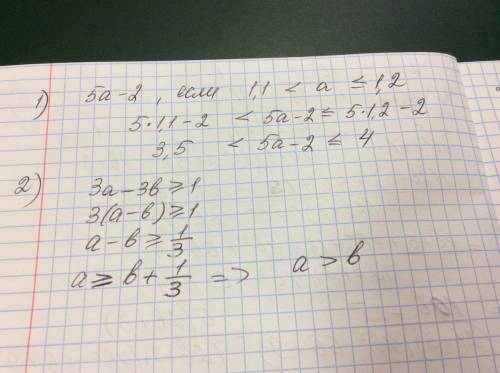 1) 5a-2, если 1,1 < a ≤ 1,2
5·1,1-2 < 5a-2 ≤ 5·1,2-2
3,5 < 5a-2 ≤ 4
2) 3a-3b ≥ 1
3(a-b) ≥ 1
a-b ≥ 1/3
a ≥ b + 1/3 => a > b